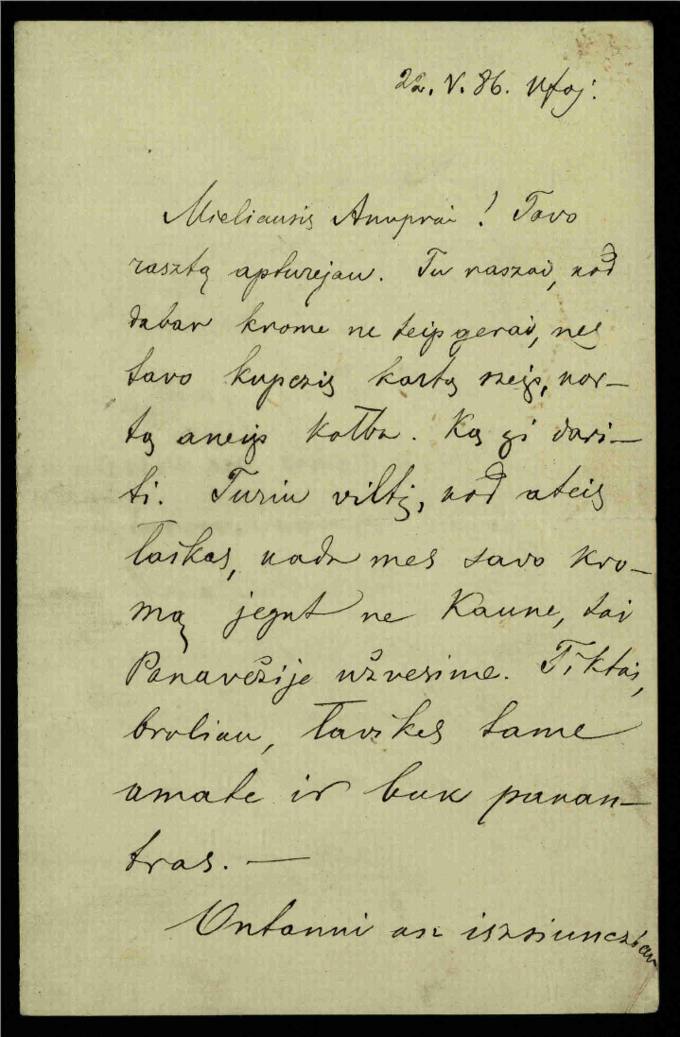 22. V. 86. Ufoj.
Mieliausis Anuprai! Tavo
rasztą apturejau. Tu raszai, kad
dabar krome ne teip gerai, nes
tavo kupczis kartą szeip, kar-
tą aneip kalba. Ką gi dari-
ti. Turiu viltį, kad ateis
łaikas, kada mes savo kro-
mą jegut ne Kaune, tai
Panavėžije užvesime. Tiktai,
broliau, łavikes tame
amate ir buk pakan-
tras. —
Ontanui asz iszsiuncziau